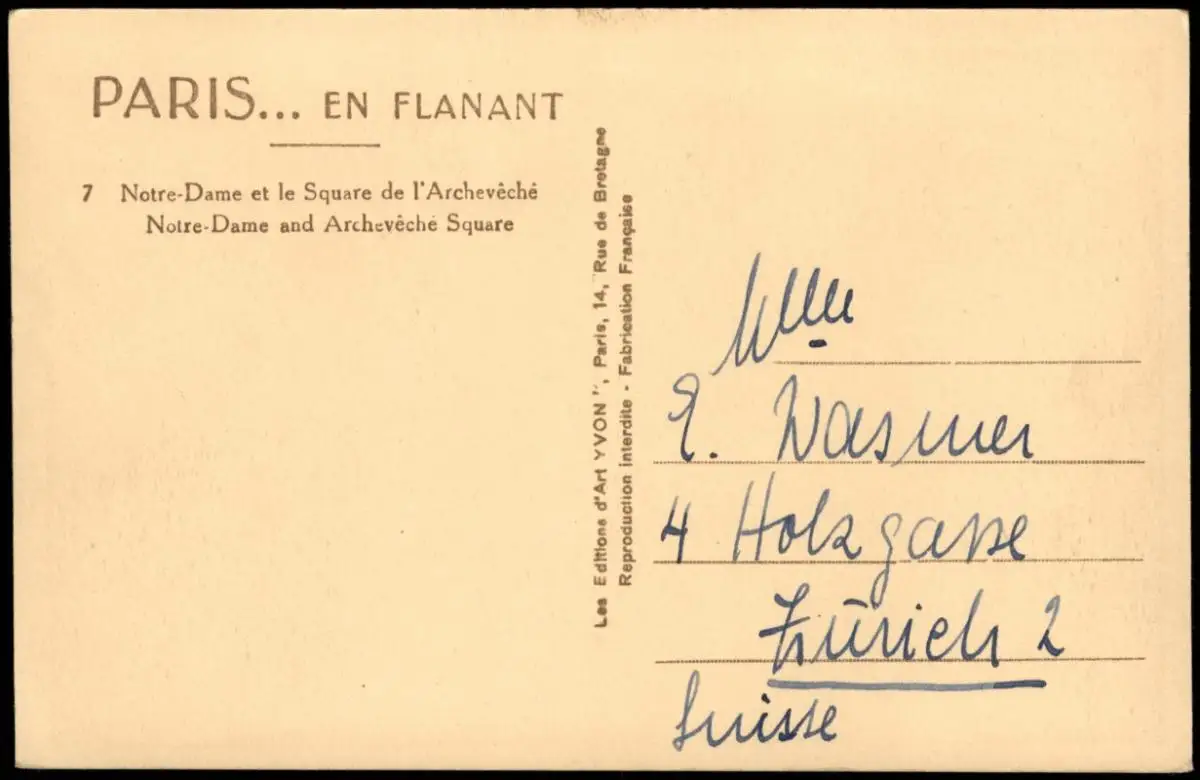 PARIS... EN FLANANT
7 Notre-Dame et le Square de l'Archevêché
Notre-Dame and Archevêché Square
Les Editions d'Art YVON", Paris, 14, Rue de Bretagne
Reproduction interdite - Fabrication Française
Mlle
E. Wasmer
4 Holzgasse
Zürich 2
Suisse